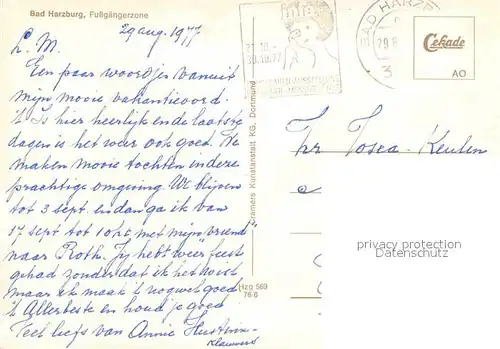 Bad Harzburg, Fußgängerzone
29 aug. 1977
L. M.
Een paar woordjes vanuit
mijn mooie vakantieoord.
't Is hier heerlijk en de laatste
dagen is het weer ook goed. We
maken mooie tochten in deze
prachtige omgeving. We blijven
tot 3 sept. en dan ga ik van
17 sept tot 1 okt met mijn "vriend"
naar Roth. Jij hebt weer feest
gehad zonder dat ik het wist
maar ik maak 't nog wel goed
't Allerbeste en houd je goed
Veel liefs van Annie Hustinx-
Klauwers
Cramers Kunstanstalt KG, Dortmund
Hzg 569
76/6
21.10.-
30.10.77
BAD HARZB
29.8
3
Cekade
AO
Fr. Tosca - Keulen
privacy protection
Datenschutz